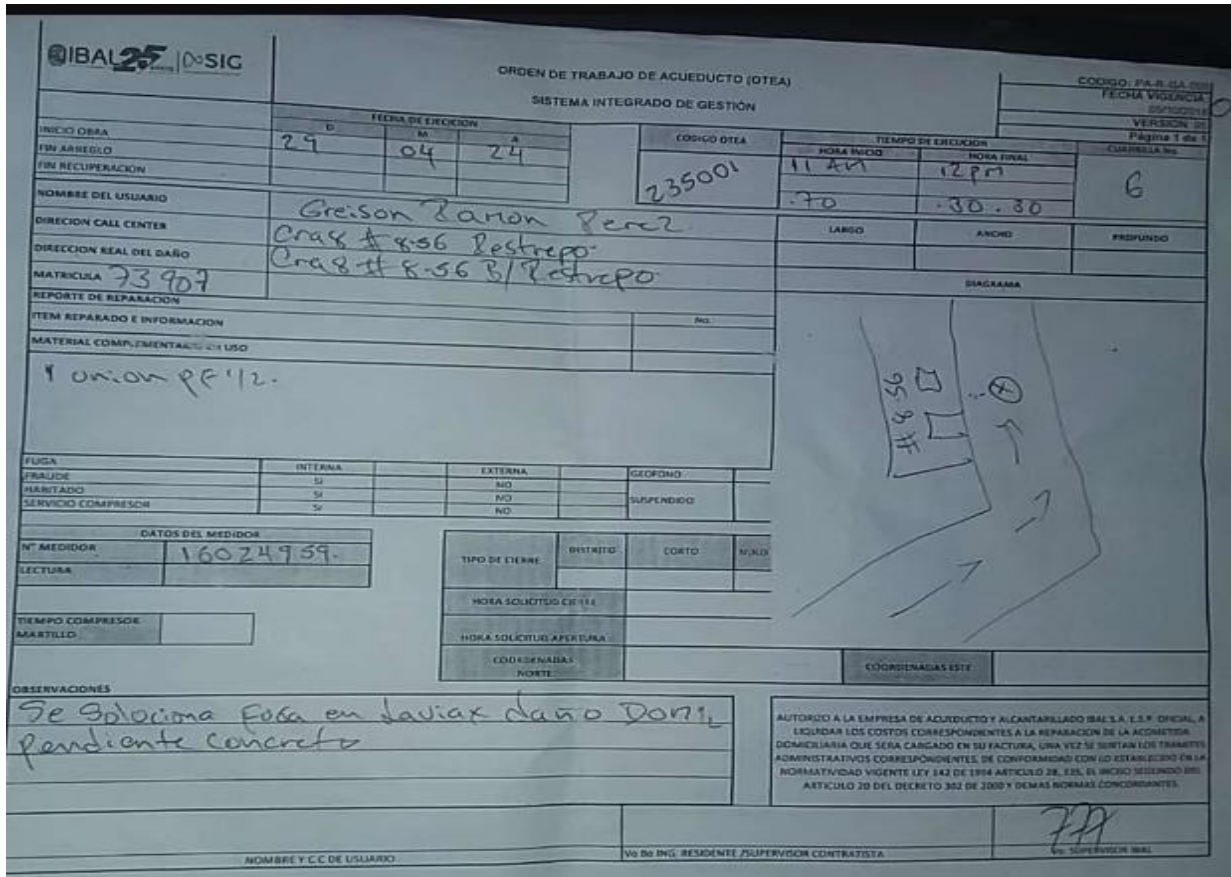 IBAL 25 SIG
ORDEN DE TRABAJO DE ACUEDUCTO (OTEA)
SISTEMA INTEGRADO DE GESTIÓN
FECHA VIGENCIA
Página 1 de 1
FECHA DE EJECICION
D M A
INICIO OBRA 29 04 24
FIN ARREGLO
FIN RECUPERACIÓN
CODIGO OTEA
235001
TIEMPO DE EJECUCION
HORA INICIO HORA FINAL
11 AM 12 pm
.70 .30.30
CUADRILLA No.
6
NOMBRE DEL USUARIO Greison Ramon Perez
DIRECION CALL CENTER Cra8 # 8-56 Restrepo
DIRECCION REAL DEL DAÑO Cra8 # 8-56 B/Restrepo
MATRICULA 73907
LARGO ANCHO PROFUNDO
DIAGRAMA
# 8-56
REPORTE DE REPARACION
ITEM REPARADO E INFORMACION No.
MATERIAL COMPLEMENTARIO EN USO
1 union PF 1/2.
FUGA INTERNA EXTERNA GEOFONO
FRAUDE SI NO
HABITADO SI NO SUSPENDIDO
SERVICIO COMPRESOR SI NO
DATOS DEL MEDIDOR
N° MEDIDOR 16024959.
LECTURA
TIPO DE CIERRE DISTRITO CORTO
HORA SOLICITUD CIERRE
TIEMPO COMPRESOR
MARTILLO
HORA SOLICITUD APERTURA
COORDENADAS NORTE COORDENADAS ESTE
OBSERVACIONES
Se Soluciona Fuga en
daño Domi
pendiente concreto
AUTORIZO A LA EMPRESA DE ACUEDUCTO Y ALCANTARILLADO IBAL S.A. E.S.P. OFICIAL, A
LIQUIDAR LOS COSTOS CORRESPONDIENTES A LA REPARACION DE LA ACOMETIDA
DOMICILIARIA QUE SERA CARGADO EN SU FACTURA, UNA VEZ SE SURTAN LOS TRAMITES
ADMINISTRATIVOS CORRESPONDIENTES, DE CONFORMIDAD CON LO ESTABLECIDO EN LA
NORMATIVIDAD VIGENTE LEY 142 DE 1994 ARTICULO 28, 135, EL INCISO SEGUNDO DEL
ARTICULO 20 DEL DECRETO 302 DE 2000 Y DEMAS NORMAS CONCORDANTES.
NOMBRE Y C.C DE USUARIO
Vo Bo ING. RESIDENTE /SUPERVISOR CONTRATISTA
Vo. SUPERVISOR IBAL